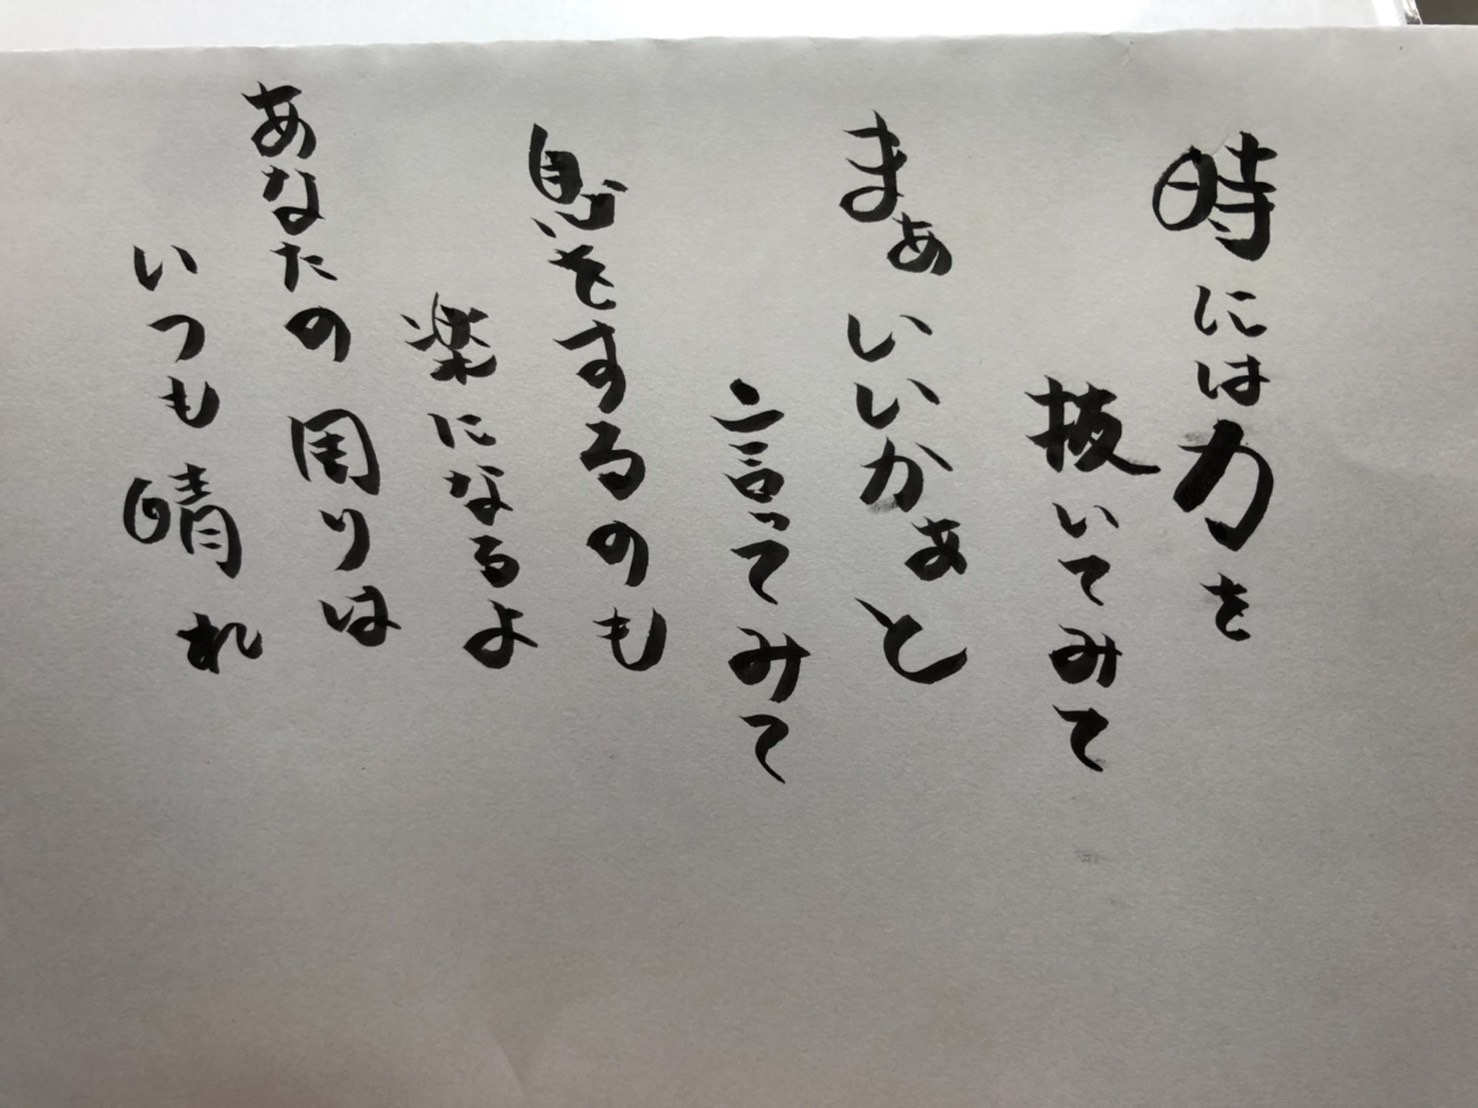 時には力を
抜いてみて
まぁいいかぁと
言ってみて
息をするのも
楽になるよ
あなたの周りは
いつも晴れ